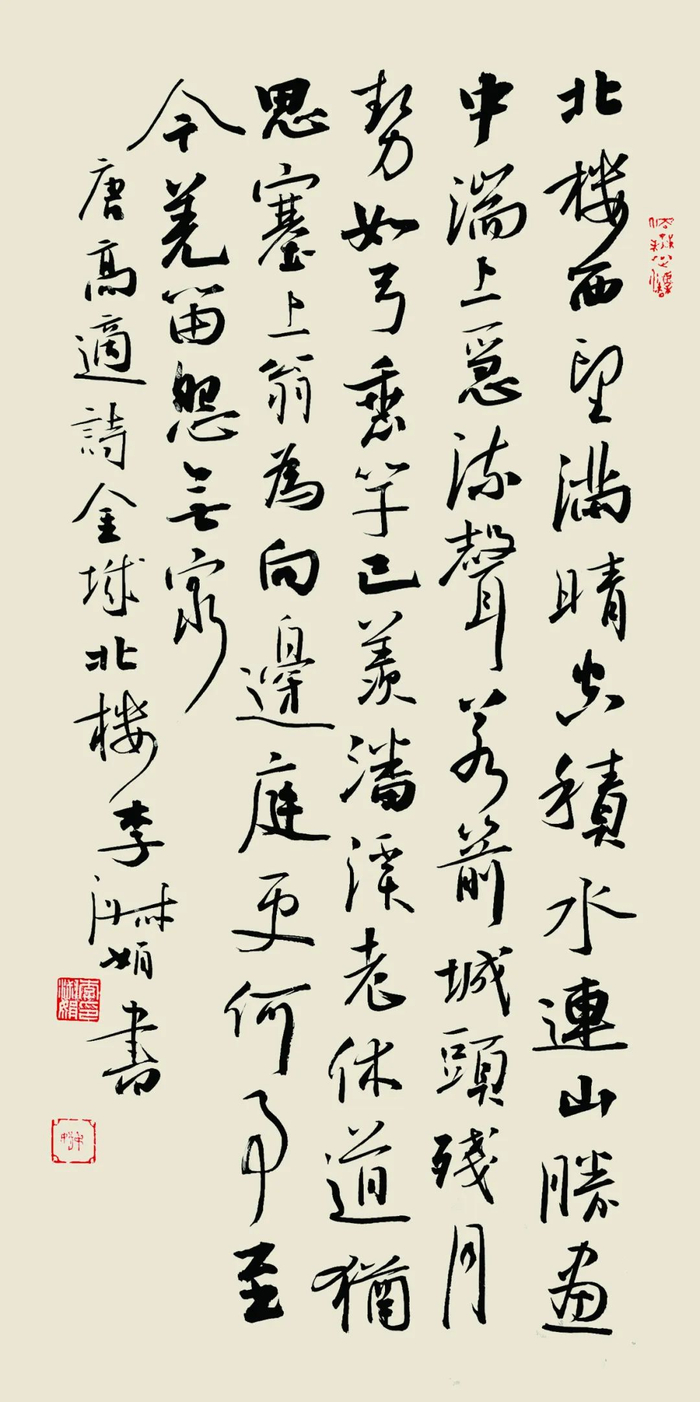 北樓西望滿晴空積水連山勝畫
中湍上急流聲若箭城頭殘月
勢如弓垂竿已羨潘溪老休道猶
思塞上翁為向邊庭更何事至
今羌笛怨無窮
唐高適詩金城北樓李淑娟書
李淑娟印